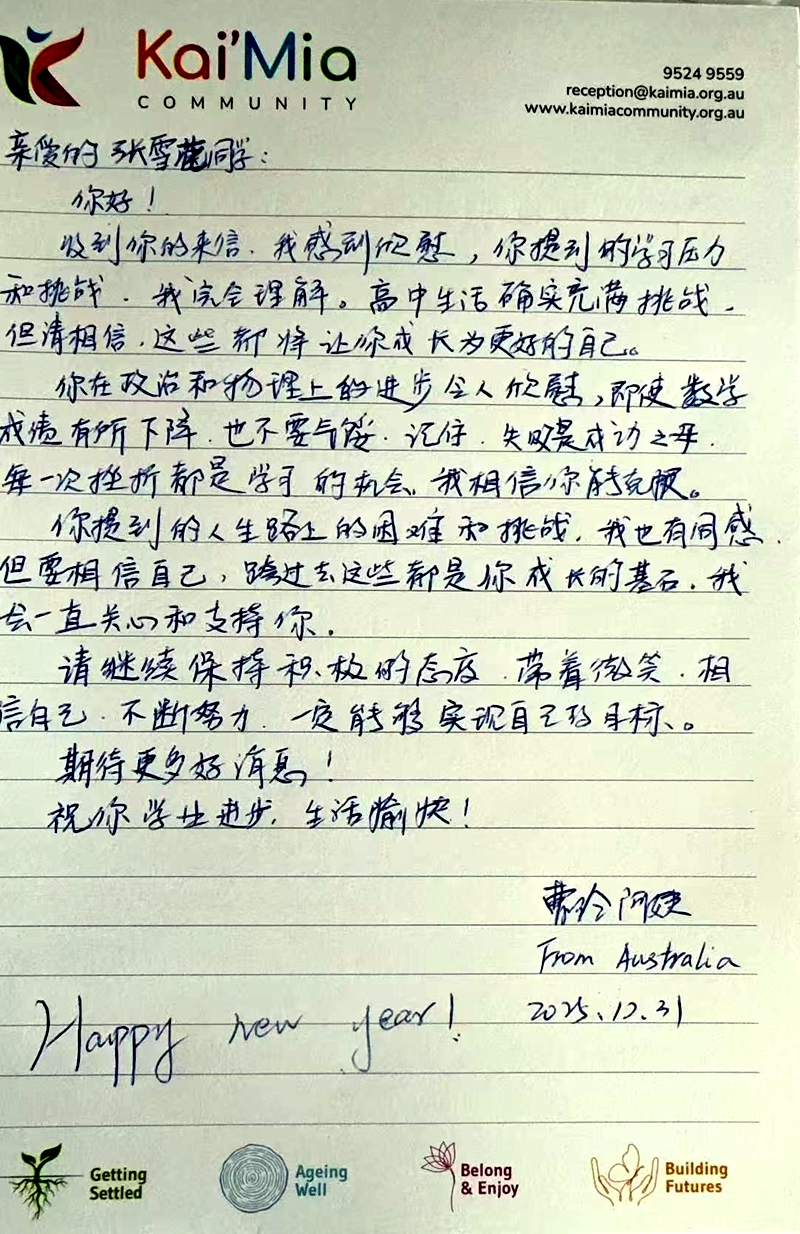 Kai'Mia
COMMUNITY
9524 9559
reception@kaimia.org.au
www.kaimiacommunity.org.au
亲爱的张雪莲同学：
你好！
收到你的来信，我感到欣慰，你提到的学习压力
和挑战，我完全理解。高中生活确实充满挑战，
但请相信，这些都将让你成长为更好的自己。
你在政治和物理上的进步令人欣慰，即使数学
成绩有所下降，也不要气馁，记住，失败是成功之母，
每一次挫折都是学习的机会，我相信你能克服。
你提到的人生路上的困难和挑战，我也有同感，
但要相信自己，跨过去这些都是你成长的基石，我
会一直关心和支持你。
请继续保持积极的态度，带着微笑，相
信自己，不断努力，一定能够实现自己的目标。
期待更多好消息！
祝你学业进步，生活愉快！
曹玲阿姨
From Australia
2025.12.31
Happy new year!
Getting
Settled
Ageing
Well
Belong
& Enjoy
Building
Futures